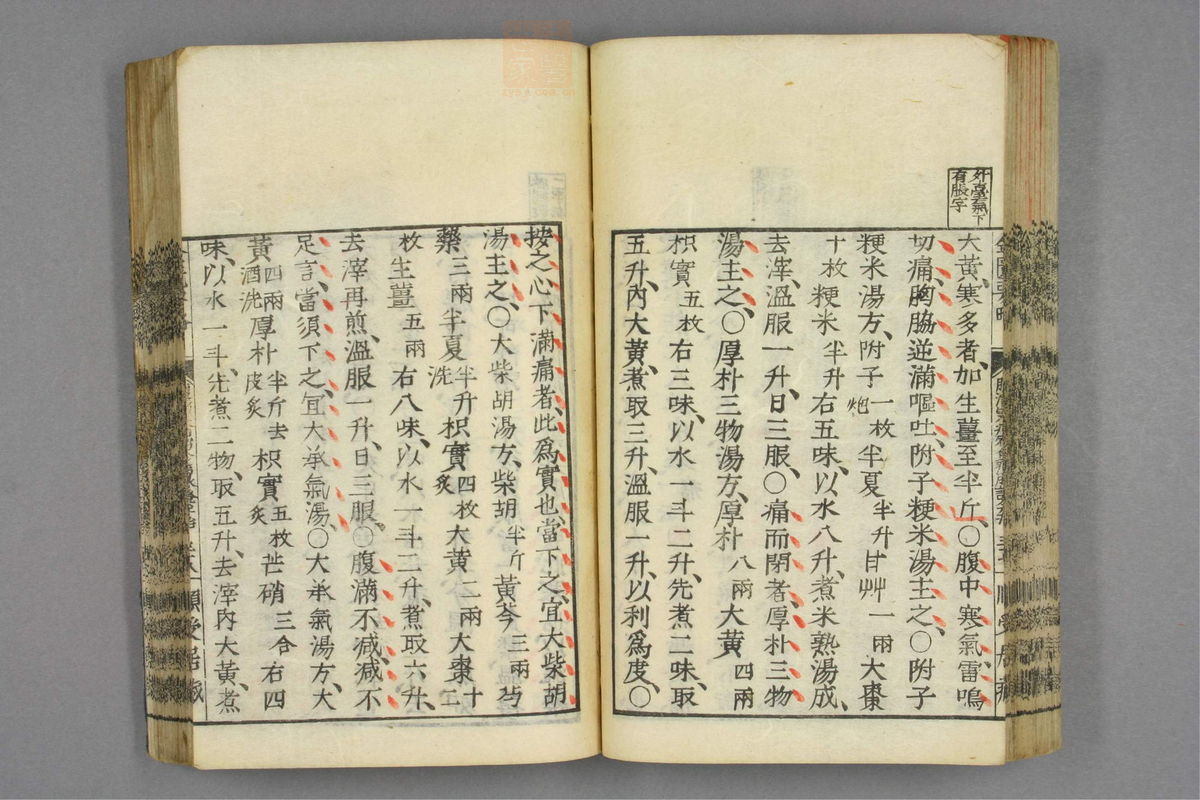 外臺氣下
有脹字
大黃、寒多者、加生薑至半斤、○腹中寒氣雷鳴
切痛、胸脇逆滿嘔吐、附子粳米湯主之、○附子
粳米湯方、附子一枚炮半夏半升甘艸一兩大棗
十枚粳米半升右五味、以水八升、煮米熟湯成、
去滓、溫服一升、日三服、○痛而閉者、厚朴三物
湯主之、○厚朴三物湯方、厚朴八兩大黃四兩
枳實五枚右三味、以水一斗二升、先煮二味、取
五升、內大黃、煮取三升、溫服一升、以利爲度、○
按之心下滿痛者、此爲實也、當下之、宜大柴胡
湯主之、○大柴胡湯方、柴胡半斤黃芩三兩芍
藥三兩半夏半升洗枳實四枚炙大黃二兩大棗十二
枚生薑五兩右八味、以水一斗二升、煮取六升、
去滓再煎、溫服一升、日三服、○腹滿不減、減不
足言、當須下之、宜大承氣湯、○大承氣湯方、大
黃四兩酒洗厚朴半斤去皮炙枳實五枚炙芒硝三合右四
味、以水一斗、先煮二物、取五升、去滓、內大黃、煮